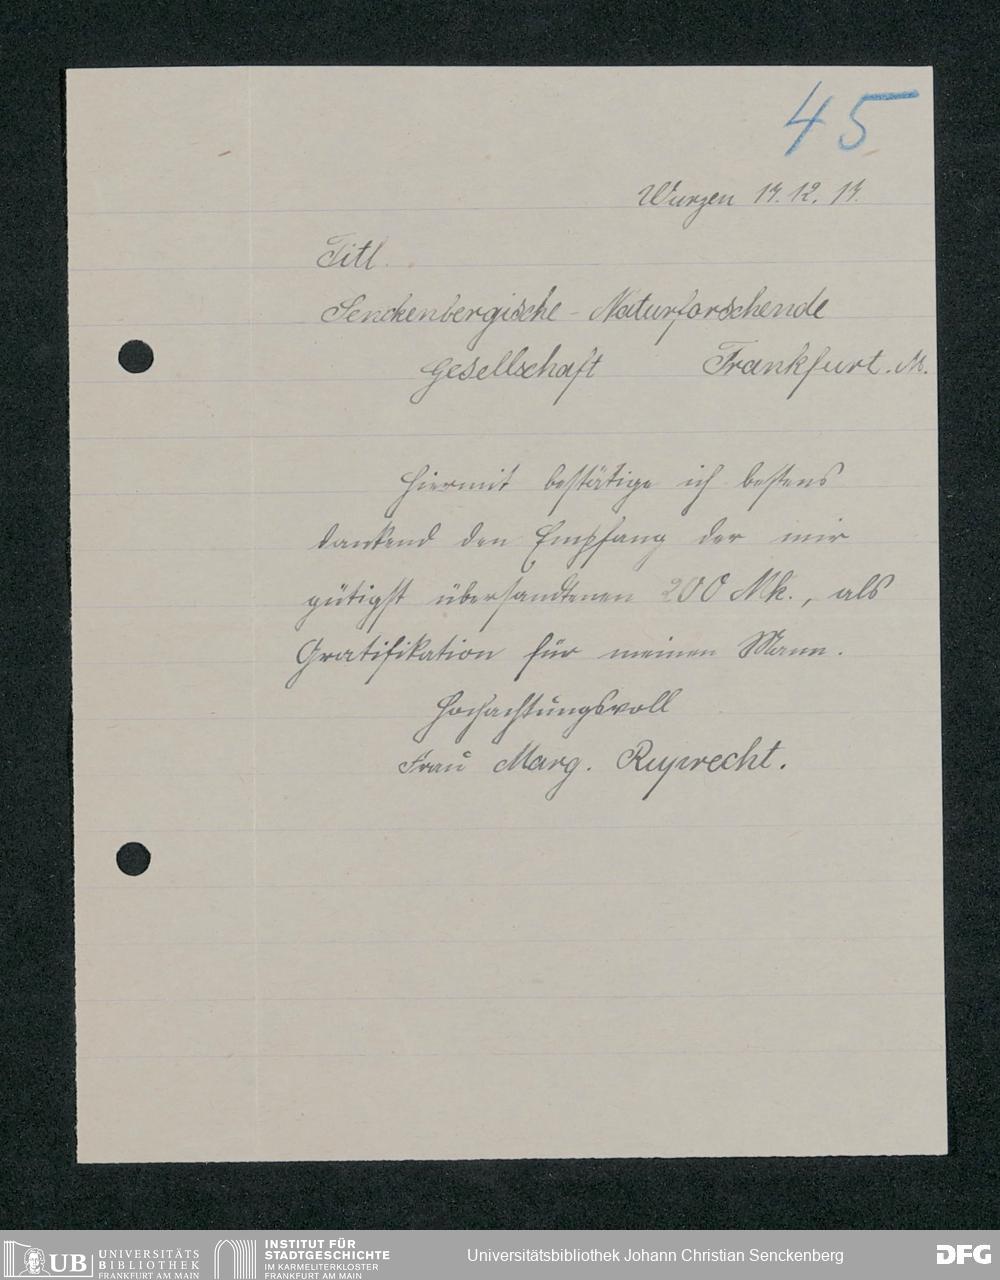 45
Wurzen 14. 12. 14.
Titl.
Senckenbergische - Naturforschende
Gesellschaft Frankfurt. M.
Hiermit bestätige ich bestens
dankend den Empfang der mir
gütigst übersandtenen 200 Mk., als
Gratifikation für meinen Mann.
Hochachtungsvoll
Frau Marg. Ruprecht.
UB UNIVERSITÄTS
BIBLIOTHEK
FRANKFURT AM MAIN
INSTITUT FÜR
STADTGESCHICHTE
IM KARMELITERKLOSTER
FRANKFURT AM MAIN
Universitätsbibliothek Johann Christian Senckenberg
DFG